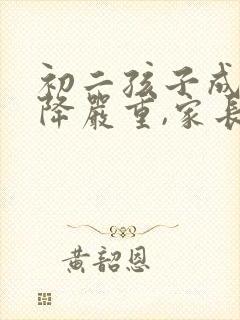 初二孩子成
降嚴重,家長
黄韶恩